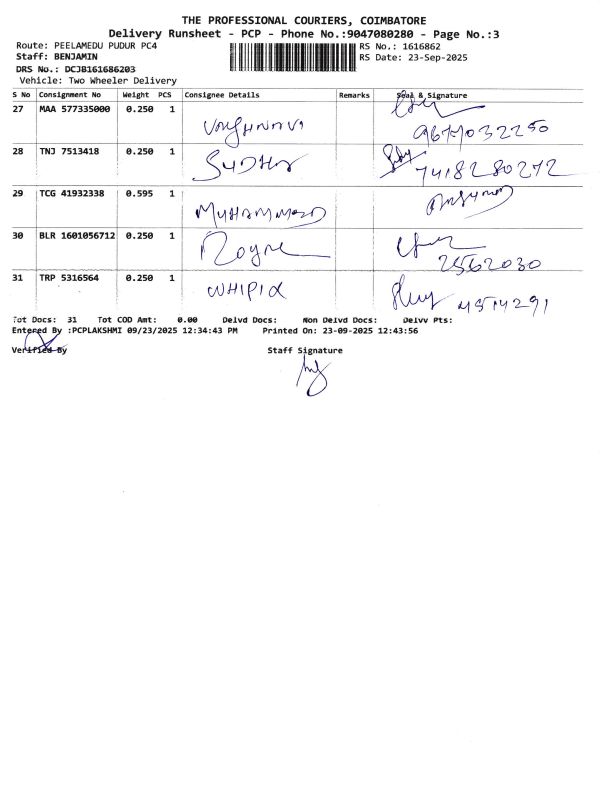 THE PROFESSIONAL COURIERS, COIMBATORE
Delivery Runsheet - PCP - Phone No.:9047080280 - Page No.:3
Route: PEELAMEDU PUDUR PC4 RS No.: 1616862
Staff: BENJAMIN RS Date: 23-Sep-2025
DRS No.: DCJB161686203
Vehicle: Two Wheeler Delivery
S No Consignment No Weight PCS Consignee Details Remarks Seal & Signature
27 MAA 577335000 0.250 1
28 TNJ 7513418 0.250 1 SUDHA 7418280272
29 TCG 41932338 0.595 1
MUHAMMED
30 BLR 1601056712 0.250 1
2562030
31 TRP 5316564 0.250 1
Tot Docs: 31 Tot COD Amt: 0.00 Delvd Docs: Non Delvd Docs: Delvv Pts:
Entered By :PCPLAKSHMI 09/23/2025 12:34:43 PM Printed On: 23-09-2025 12:43:56
Verified By Staff Signature